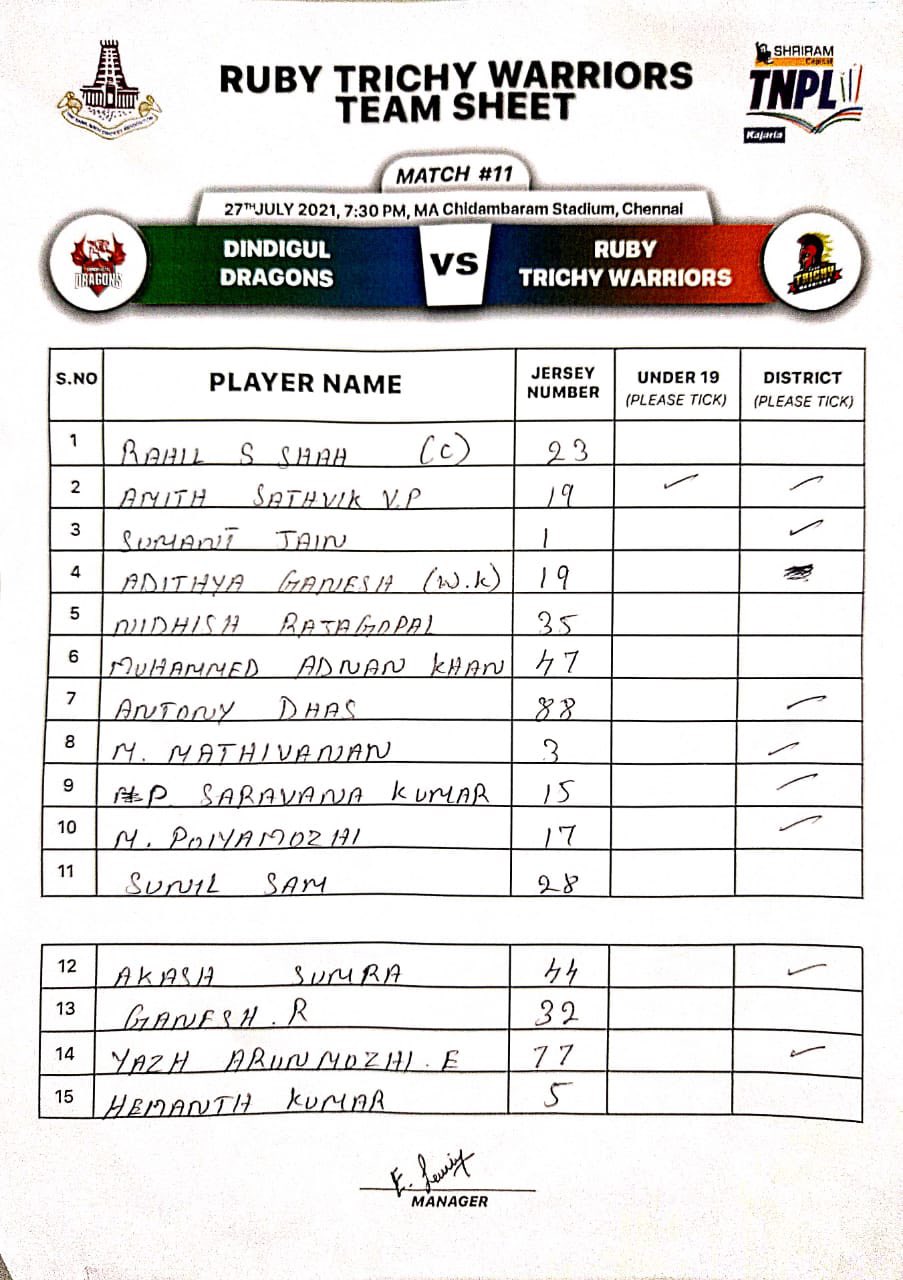 RUBY TRICHY WARRIORS
TEAM SHEET
SHRIRAM
Capital
TNPL
Kajaria
MATCH #11
27TH JULY 2021, 7:30 PM, MA Chidambaram Stadium, Chennai
DRAGONS
DINDIGUL
DRAGONS
VS
RUBY
TRICHY WARRIORS
TRICHY
WARRIORS
S.NO PLAYER NAME JERSEY NUMBER UNDER 19 (PLEASE TICK) DISTRICT (PLEASE TICK)
1 RAHIL S SHAH (C) 23
2 AMITH SATHVIK V.P 19 ✓ ✓
3 SUMANT JAIN 1 ✓
4 ADITHYA GANESH (W.K) 19
5 NIDHISH RAJAGOPAL 35
6 MUHAMMED ADNAN KHAN 47
7 ANTONY DHAS 88 ✓
8 M. MATHIVANAN 3 ✓
9 P SARAVANA KUMAR 15 ✓
10 M. POIYAMOZHI 17 ✓
11 SUNIL SAM 28
12 AKASH SUMRA 44 ✓
13 GANESH . R 32
14 YAZH ARUNMOZHI . E 77 ✓
15 HEMANTH KUMAR 5
MANAGER